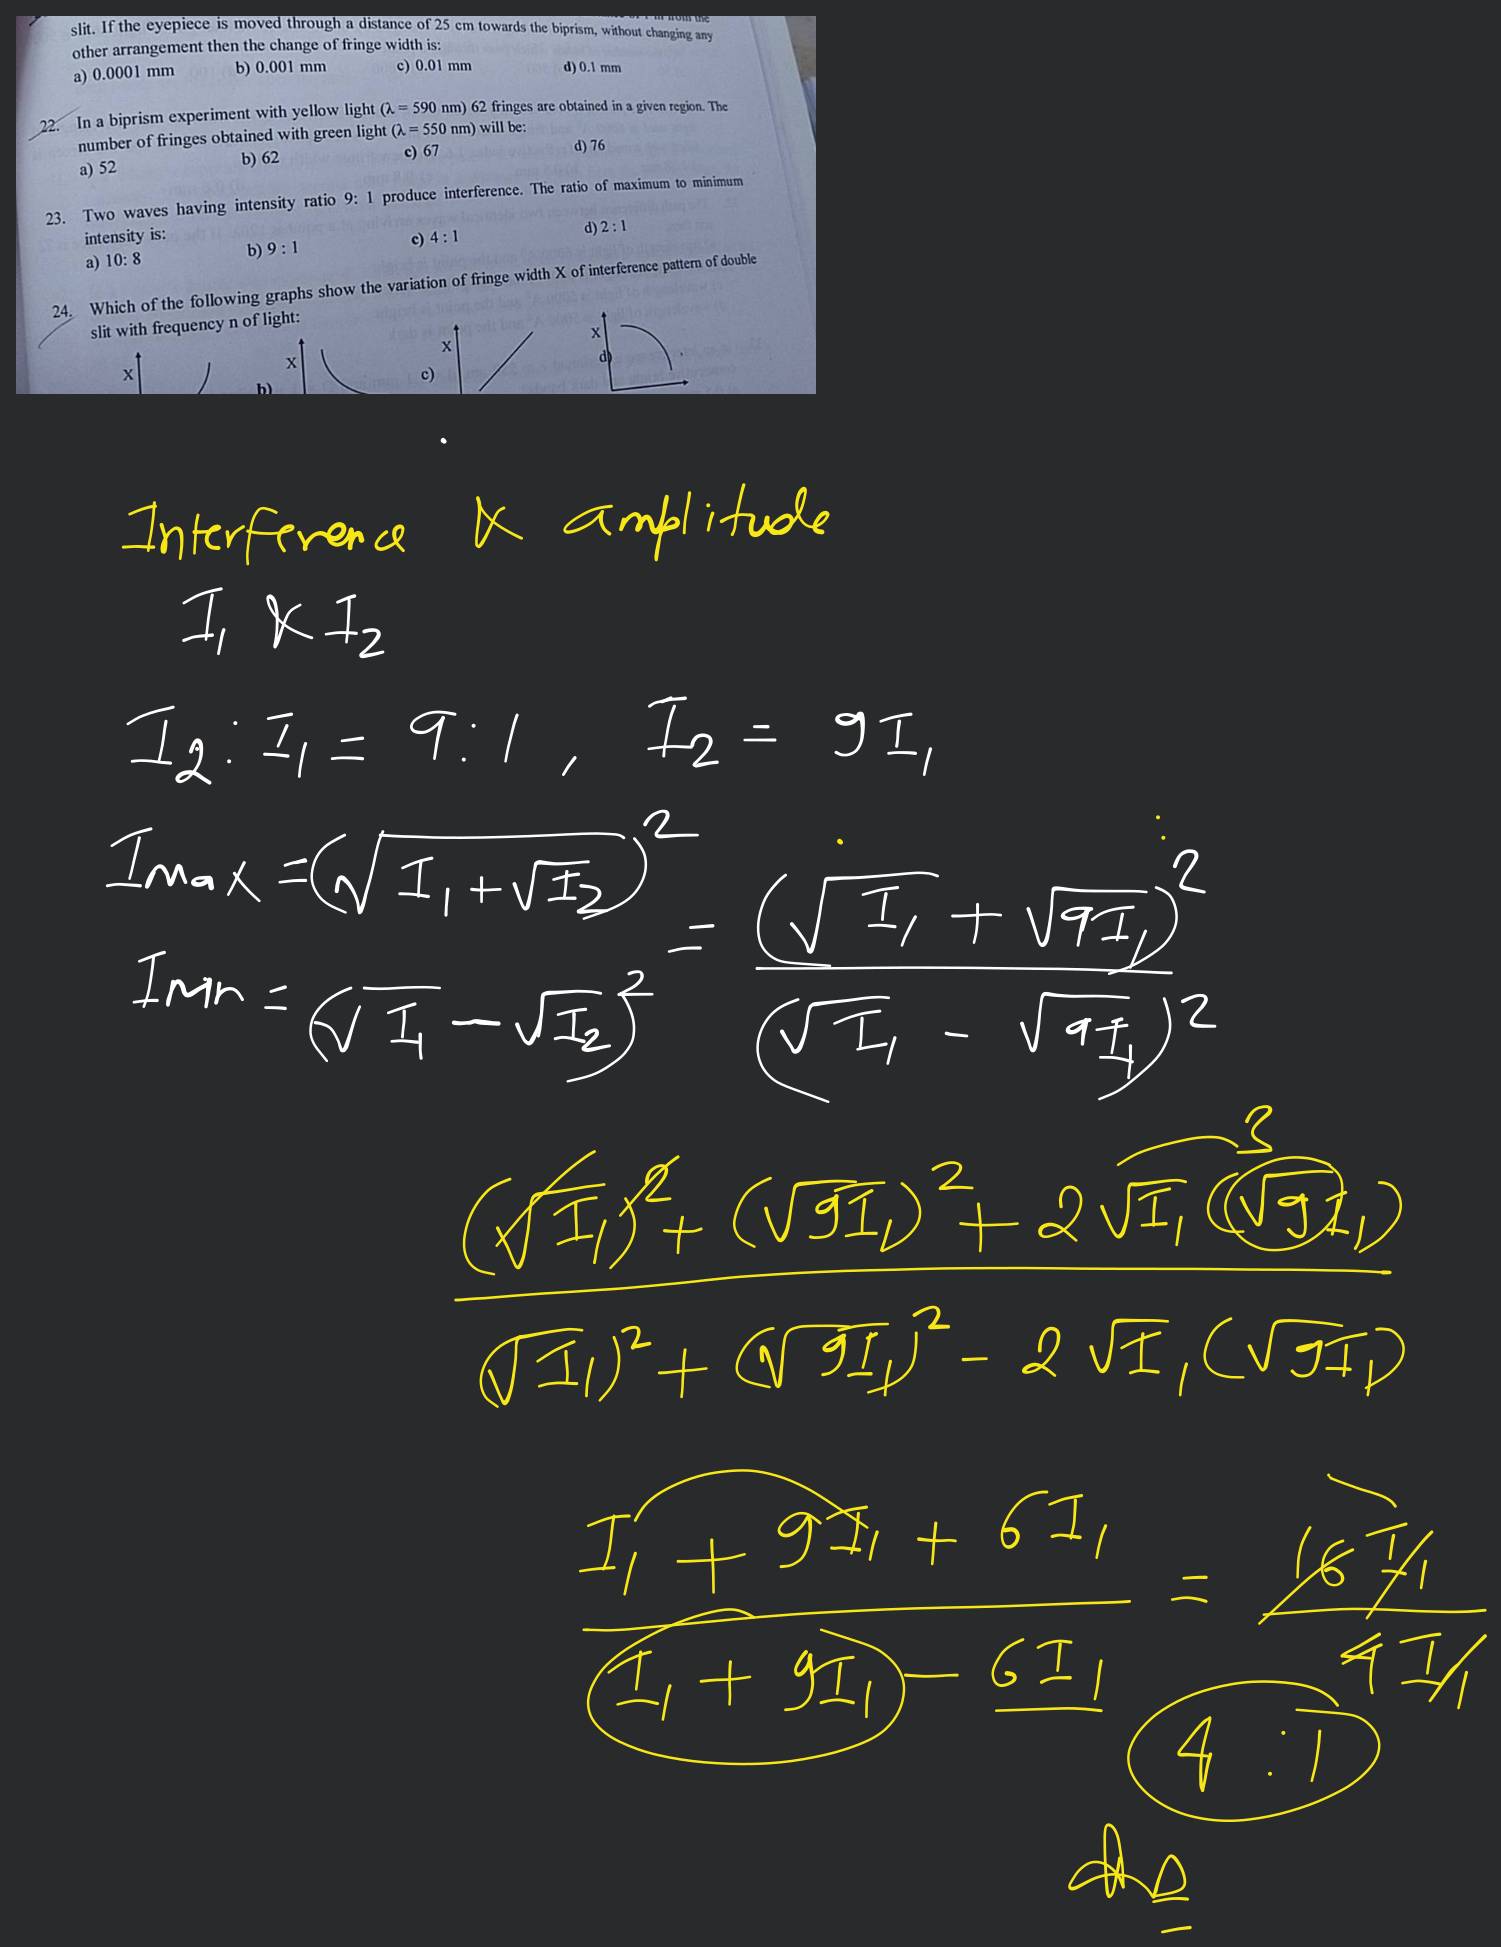 slit. If the eyepiece is moved through a distance of 25 cm towards the biprism, without changing any
other arrangement then the change of fringe width is:
a) 0.0001 mm b) 0.001 mm c) 0.01 mm d) 0.1 mm
22. In a biprism experiment with yellow light (λ = 590 nm) 62 fringes are obtained in a given region. The
number of fringes obtained with green light (λ = 550 nm) will be:
a) 52 b) 62 c) 67 d) 76
23. Two waves having intensity ratio 9: 1 produce interference. The ratio of maximum to minimum
intensity is:
a) 10: 8 b) 9 : 1 c) 4 : 1 d) 2 : 1
24. Which of the following graphs show the variation of fringe width X of interference pattern of double
slit with frequency n of light:
X b) X c) X d) X
Interference & amplitude
I₁ & I₂
I₂ : I₁ = 9 : 1 , I₂ = 9I₁
Imax = (√I₁ + √I₂)² = (√I₁ + √9I₁)²
Imin = (√I₁ - √I₂)² (√I₁ - √9I₁)²
3
(√I₁)² + (√9I₁)² + 2√I₁ (√9I₁)
(√I₁)² + (√9I₁)² - 2√I₁ (√9I₁)
I₁ + 9I₁ + 6I₁ = 16I₁
I₁ + 9I₁ - 6I₁ 4I₁
4 : 1